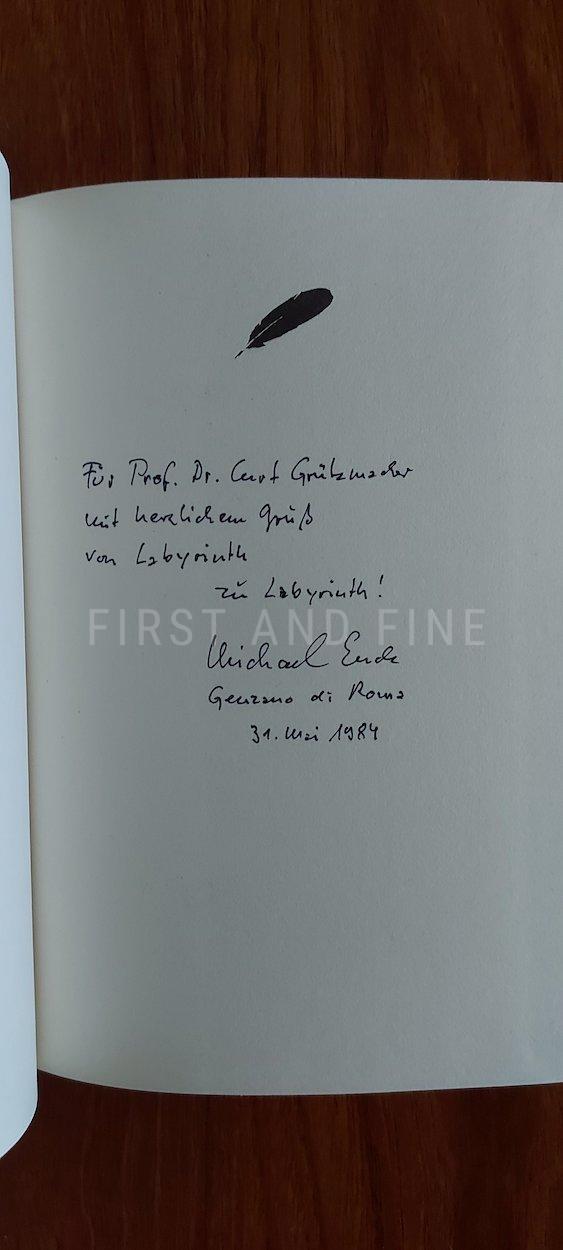 Für Prof. Dr. Curt Grützmacher
mit herzlichem Gruß
von Labyrinth
zu Labyrinth!
FIRST AND FINE
Michael Ende
Genzano di Roma
31. Mai 1984